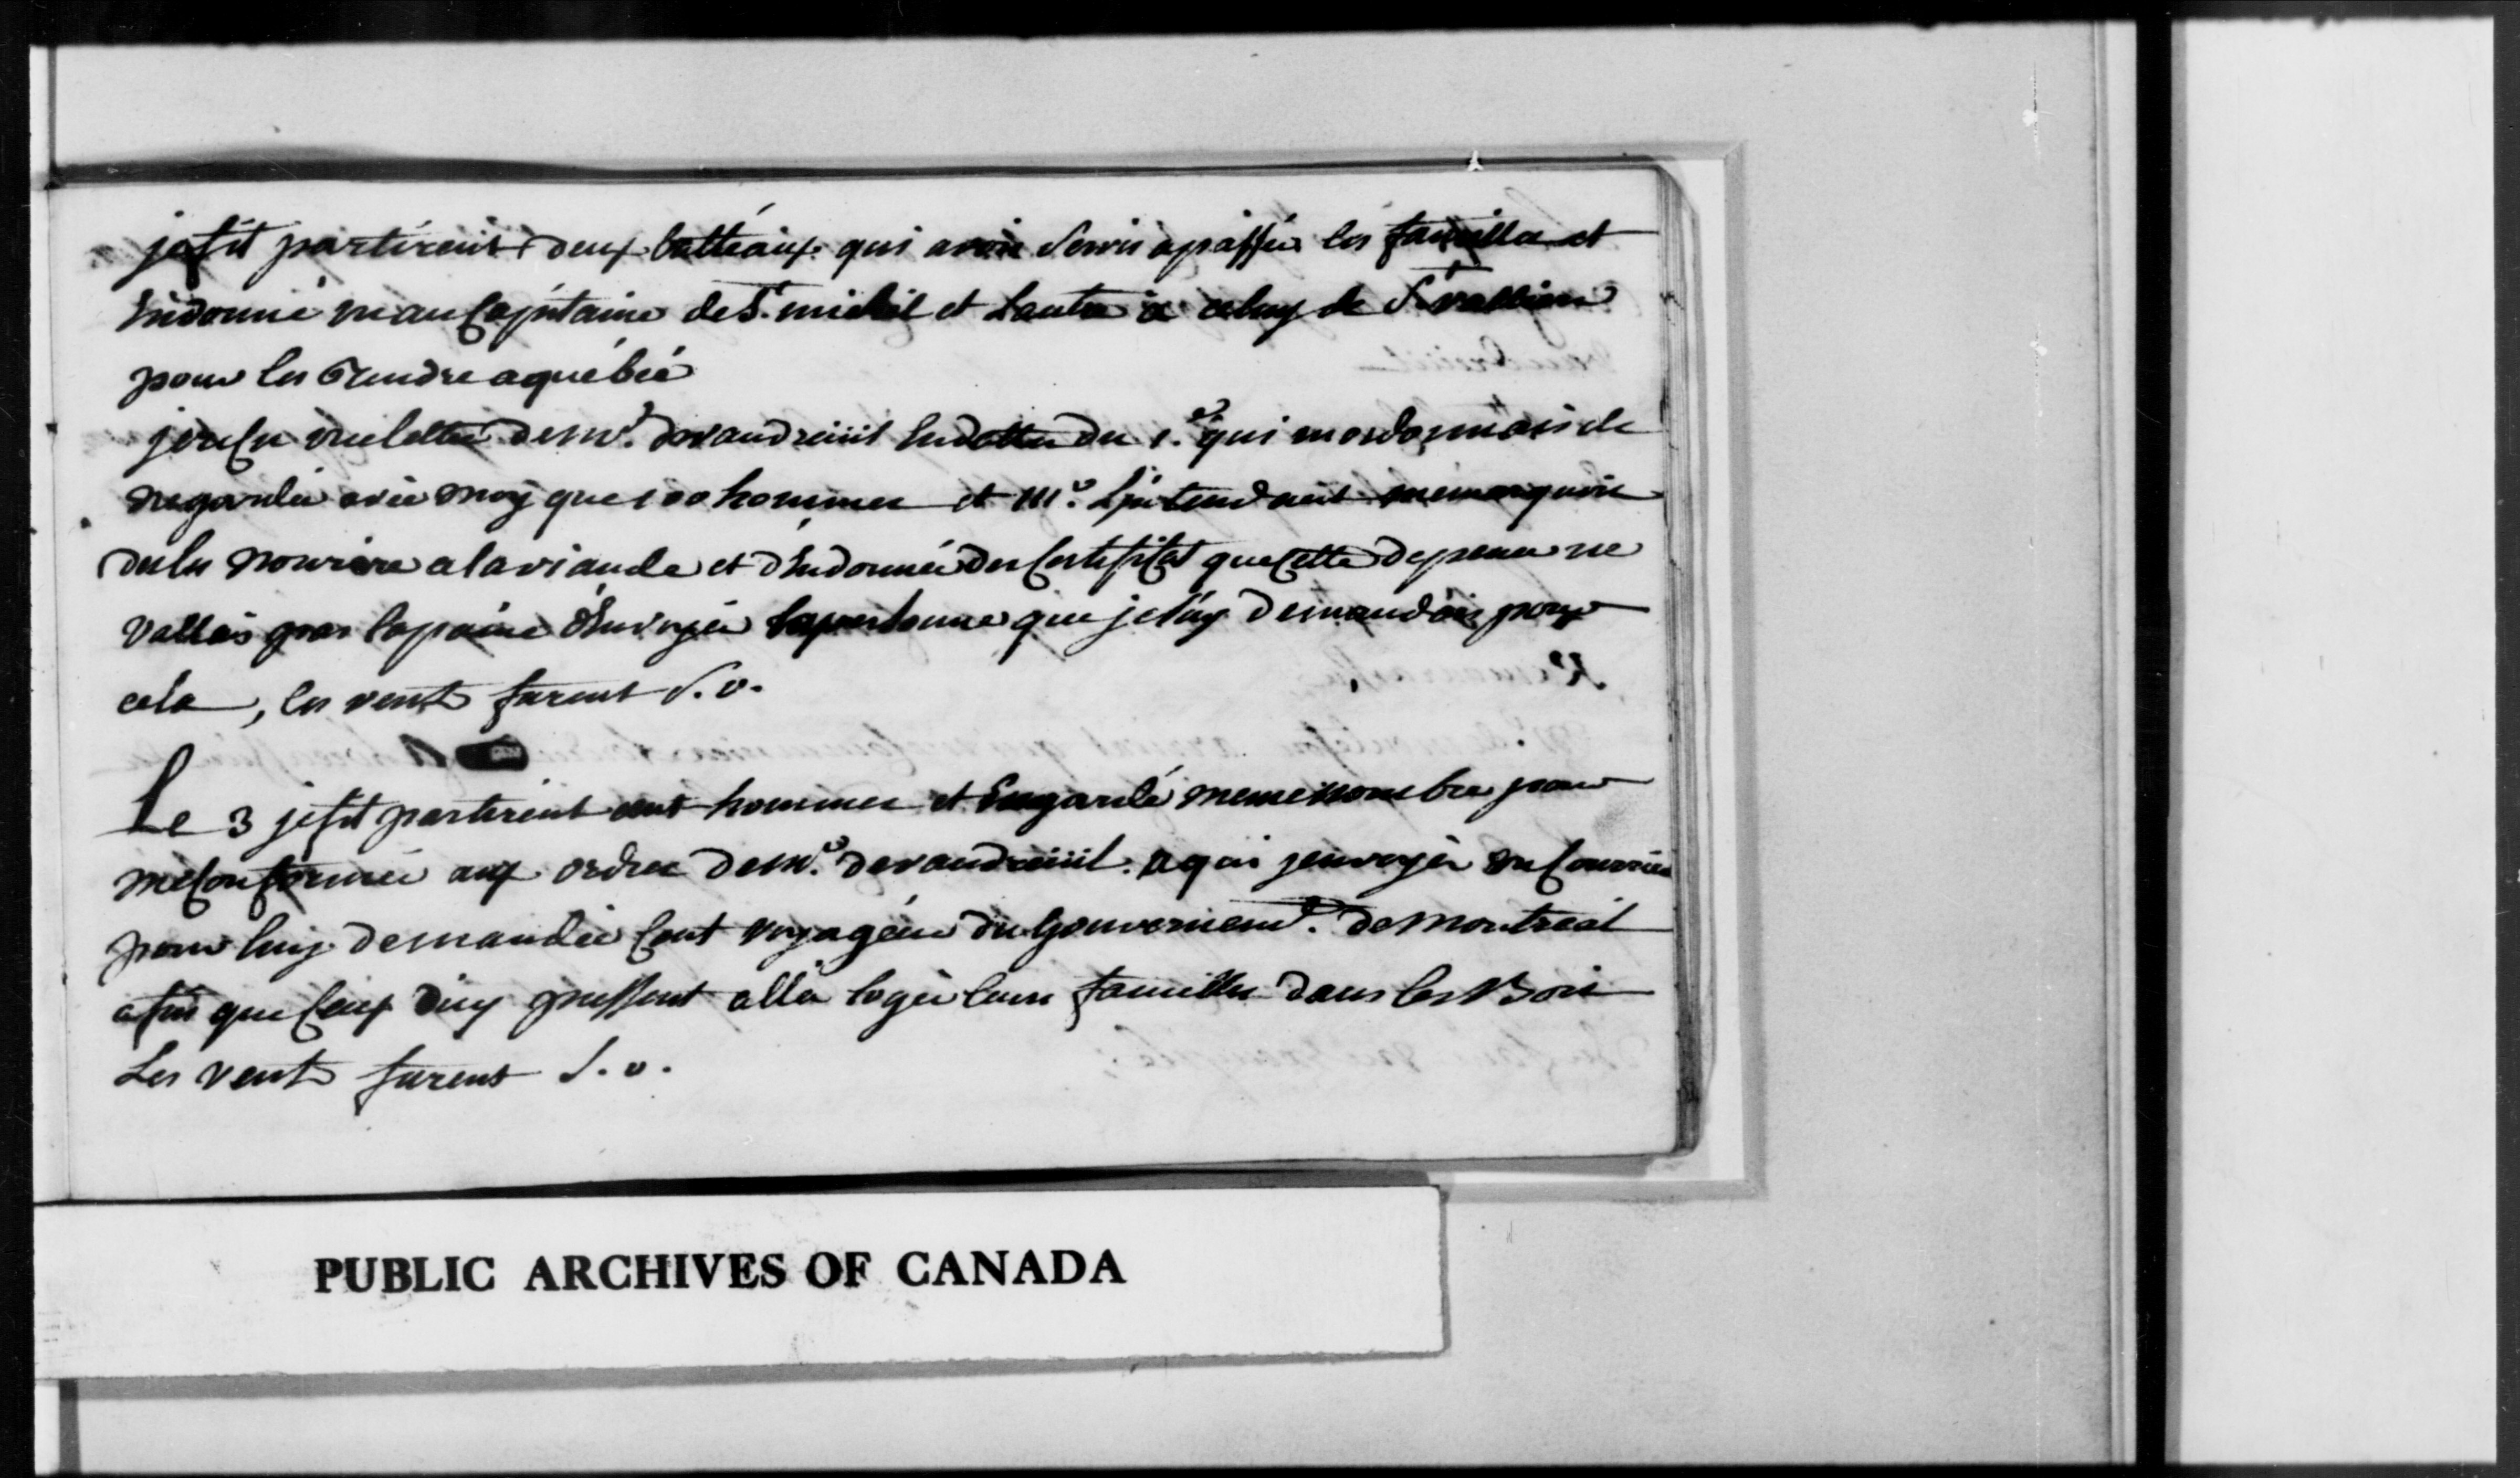 jefit partireint deux batteaux qui avoie servis apassée les famille et
Endonné un au Capitaine de St. michel et Lautre a celuy de St. vallier
pour les Rendre aquébéc
jeresu une lettre de Mr. devaudreüil Endatte du 1er qui mordonnois de
negardée avée moy que 100 hommes et Mr. Lintendant memarquoie
deles nourire alaviande et d'Endonnée des Certificat quecette depence ne
vallois pas lapaine d'Envoyée lapersonne que jeluy demandois pour
cela, les vent furent S. O.
Le 3 jefit partireint cent hommes et Engardé memenombre pour
meConformée aux ordres de Mr. devaudreüil. aqui jenvoyée un Courrier
pour luy demandée Cent voyagéure du Gouvernemt. de Montreal
afin que Ceux dicy pussent allée logée leurs familles dans les Bois
Les vent furent S. O.
PUBLIC ARCHIVES OF CANADA